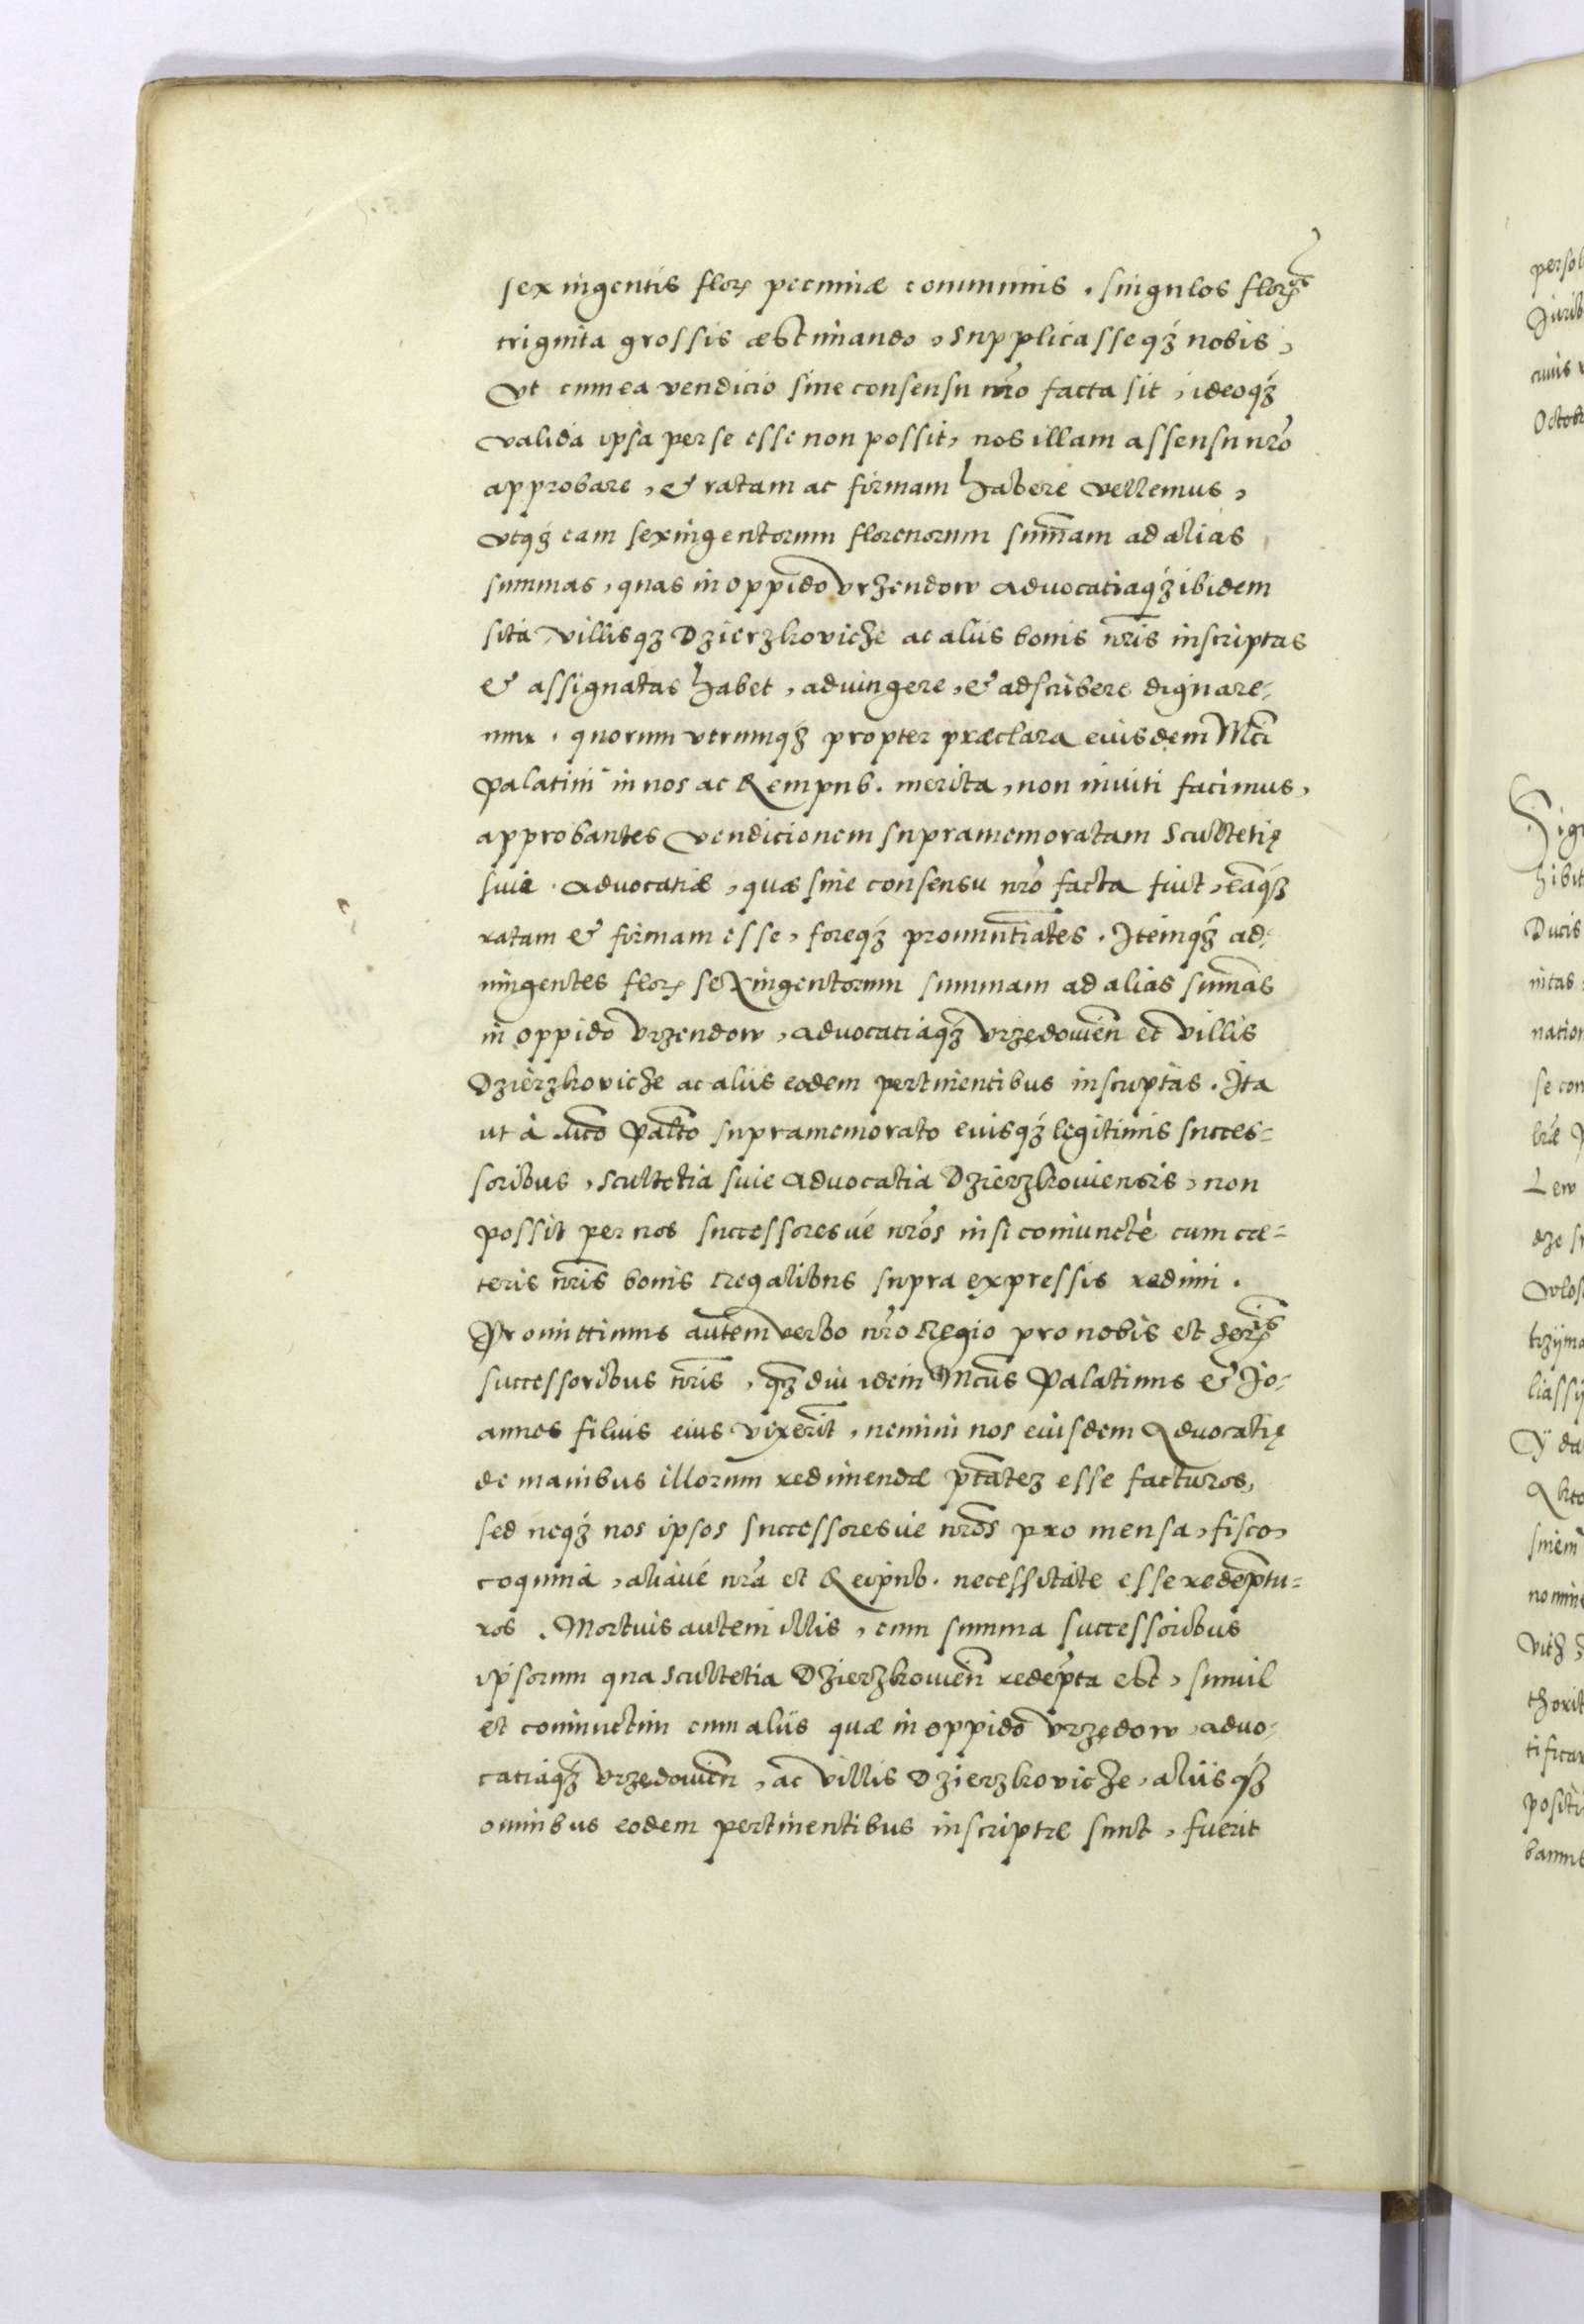 sexingentis floꝝ pecuniæ communis. singulos floꝝ
triginta grossis æstimando, supplicasseqꝫ nobis,
Vt cum ea vendicio sine consensu nr̄o facta sit, ideoqꝫ
valida ipsa per se esse non possit, nos illam assensu nr̄o
approbare, & ratam ac firmam habere vellemus,
vtqꝫ eam sexingentorum florenorum sum̄am ad alias
summas, quas in oppido Vrzendow advocatiaqꝫ ibidem
sita villisqꝫ Dzierzkovicze ac aliis bonis nr̄is inscriptas
& assignatas habet, adiungere, & adscribere dignare-
mur. quorum vtrumqꝫ propter præclara eiusdem Mci
Palatini in nos ac Rempub. merita, non inviti facimus,
approbantes vendicionem supramemoratam Scultetię
sive advocatiæ, quæ sine consensu nr̄o facta fuit, eāqꝫ
ratam & firmam esse, foreqꝫ pronuntiātes. Itemqꝫ ad-
iungentes floꝝ sexingentorum summam ad alias sum̄as
in oppido Vrzendow, advocatiaqꝫ Vrzędowien̄ et villis
Dzierzkovicze ac aliis eodem pertinentibus inscriptas. Ita
ut à Mco Palt̄o supramemorato eiusqꝫ legitimis succes=
soribus, scultetia sive advocatia Dzierzkoviensis, non
possit per nos successoresvé nr̄os nisi coniunctè cum cæ=
teris nr̄is bonis regalibus supra expressis redimi.
Promittimus autem verbo nr̄o Regio pro nobis et Serꝫis
successoribus nr̄is, qꝫdiu idem Mcus Palatinus & Jo-
annes filius eius vixerit, nemini nos eiusdem Advocatię
de manibus illorum redimendæ ptāteꝫ esse facturos,
sed neqꝫ nos ipsos successoresve nr̄os pro mensa, fisco,
coquina, aliavé nr̄a et Reipub. necessitate esse redēptu=
ros. Mortuis autem illis, cum summa successoribus
ipsorum qua scultetia Dzierzkowien̄ redēpta est, simul
et coniunctim cum aliis quæ in oppido Vrzędow, advo-
catiaqꝫ Vrzędowien̄, ac villis Dzierzkovicze, aliisqꝫ
omnibus eodem pertinentibus inscriptæ sunt, fuerit